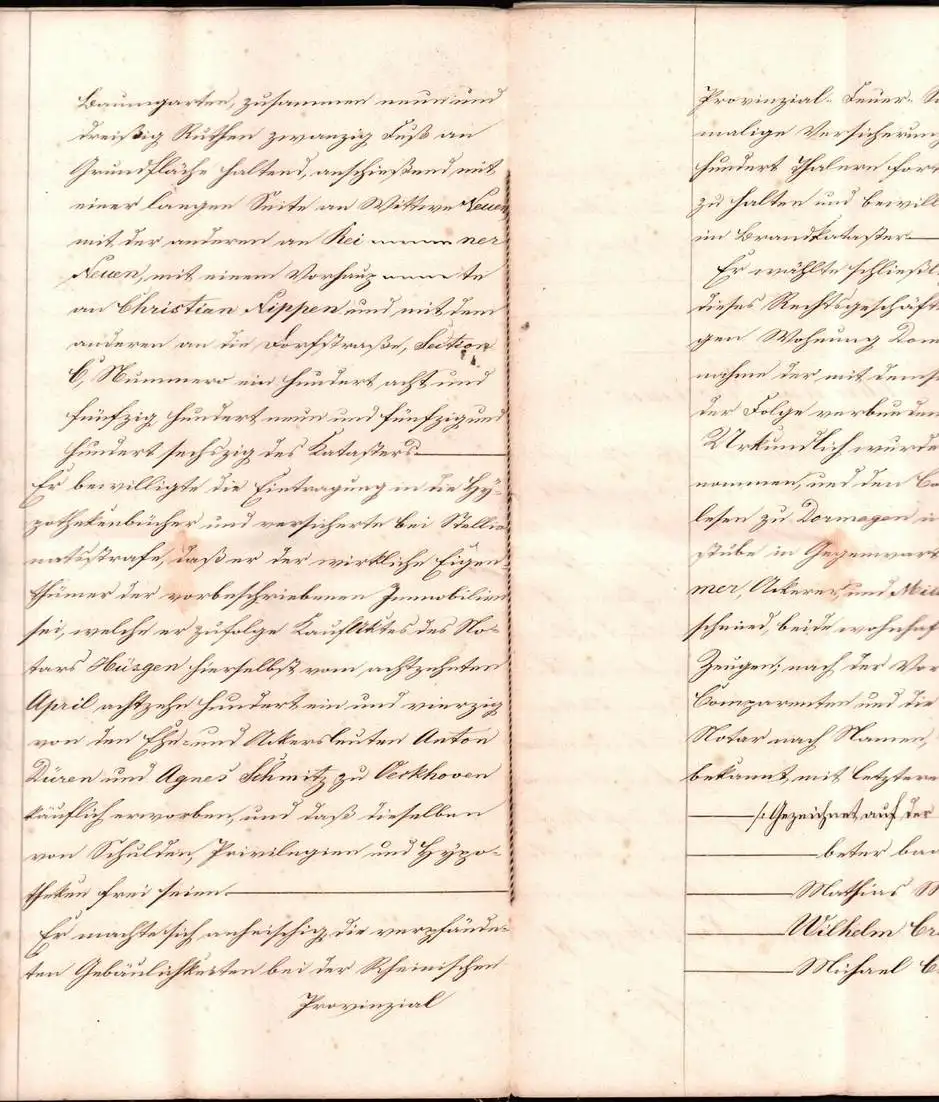 Baumgarten, zusammen neun und
dreißig Ruthen zwanzig Fuß an
Grundfläche haltend, anschießend mit
einer langen Seite an Wittwe Neuen
mit der anderen an Rei ner
Neuen, mit einem Vorhaupte
an Christian Nippen und mit dem
anderen an die Dorfstraße, Section
C, Nummero ein hundert acht und
fünfzig hundert neun und fünfzig und
hundert sechszig des Katasters.
Er bewilligte die Eintragung in die Hy-
pothekenbücher und versicherte bei Stellio-
natsstrafe, daß er der wirkliche Eigen-
thümer der vorbeschriebenen Immobilien
sei, welche er zufolge Kaufaktes des No-
tars Hüsgen hierselbst vom achtzehnten
April achtzehn hundert ein und vierzig
von den Ehe- und Ackersleuten Anton
Düren und Agnes Schmitz zu Oerkhoven
käuflich erworben, und daß dieselben
von Schulden, Privilegien und Hypo-
theken frei seien.
Er machte sich anheischig die verpfände-
ten Gebäulichkeiten bei der Rheinischen
Provinzial
Provinzial- Feuer- So
malige Versicherung
hundert Thalern for
zu halten und bewill
im Brandkataster
Er wählte schließl
dieses Rechtsgeschäft
gen Wohnung Dor
nahme der mit dem
der Folge verbunden
Urkundlich wurde
nommen, und den Co
lesen zu Dormagen i
stube in Gegenwart
mer, Ackerer und Mi
schmied, beide wohnhaf
Zeugen; nach der Vor
Comparenten und die
Notar nach Namen,
bekannt, mit letztere
/: Gezeichnet auf der
beter bac
Mathias M
Wilhelm Cr
Michael C